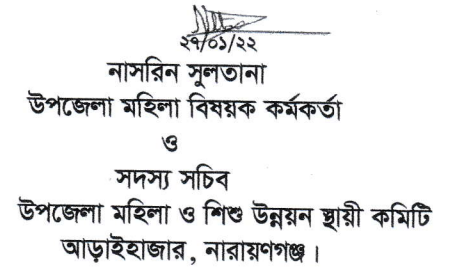 ২৭/০১/২২
নাসরিন সুলতানা
উপজেলা মহিলা বিষয়ক কর্মকর্তা
ও
সদস্য সচিব
উপজেলা মহিলা ও শিশু উন্নয়ন স্থায়ী কমিটি
আড়াইহাজার, নারায়ণগঞ্জ।